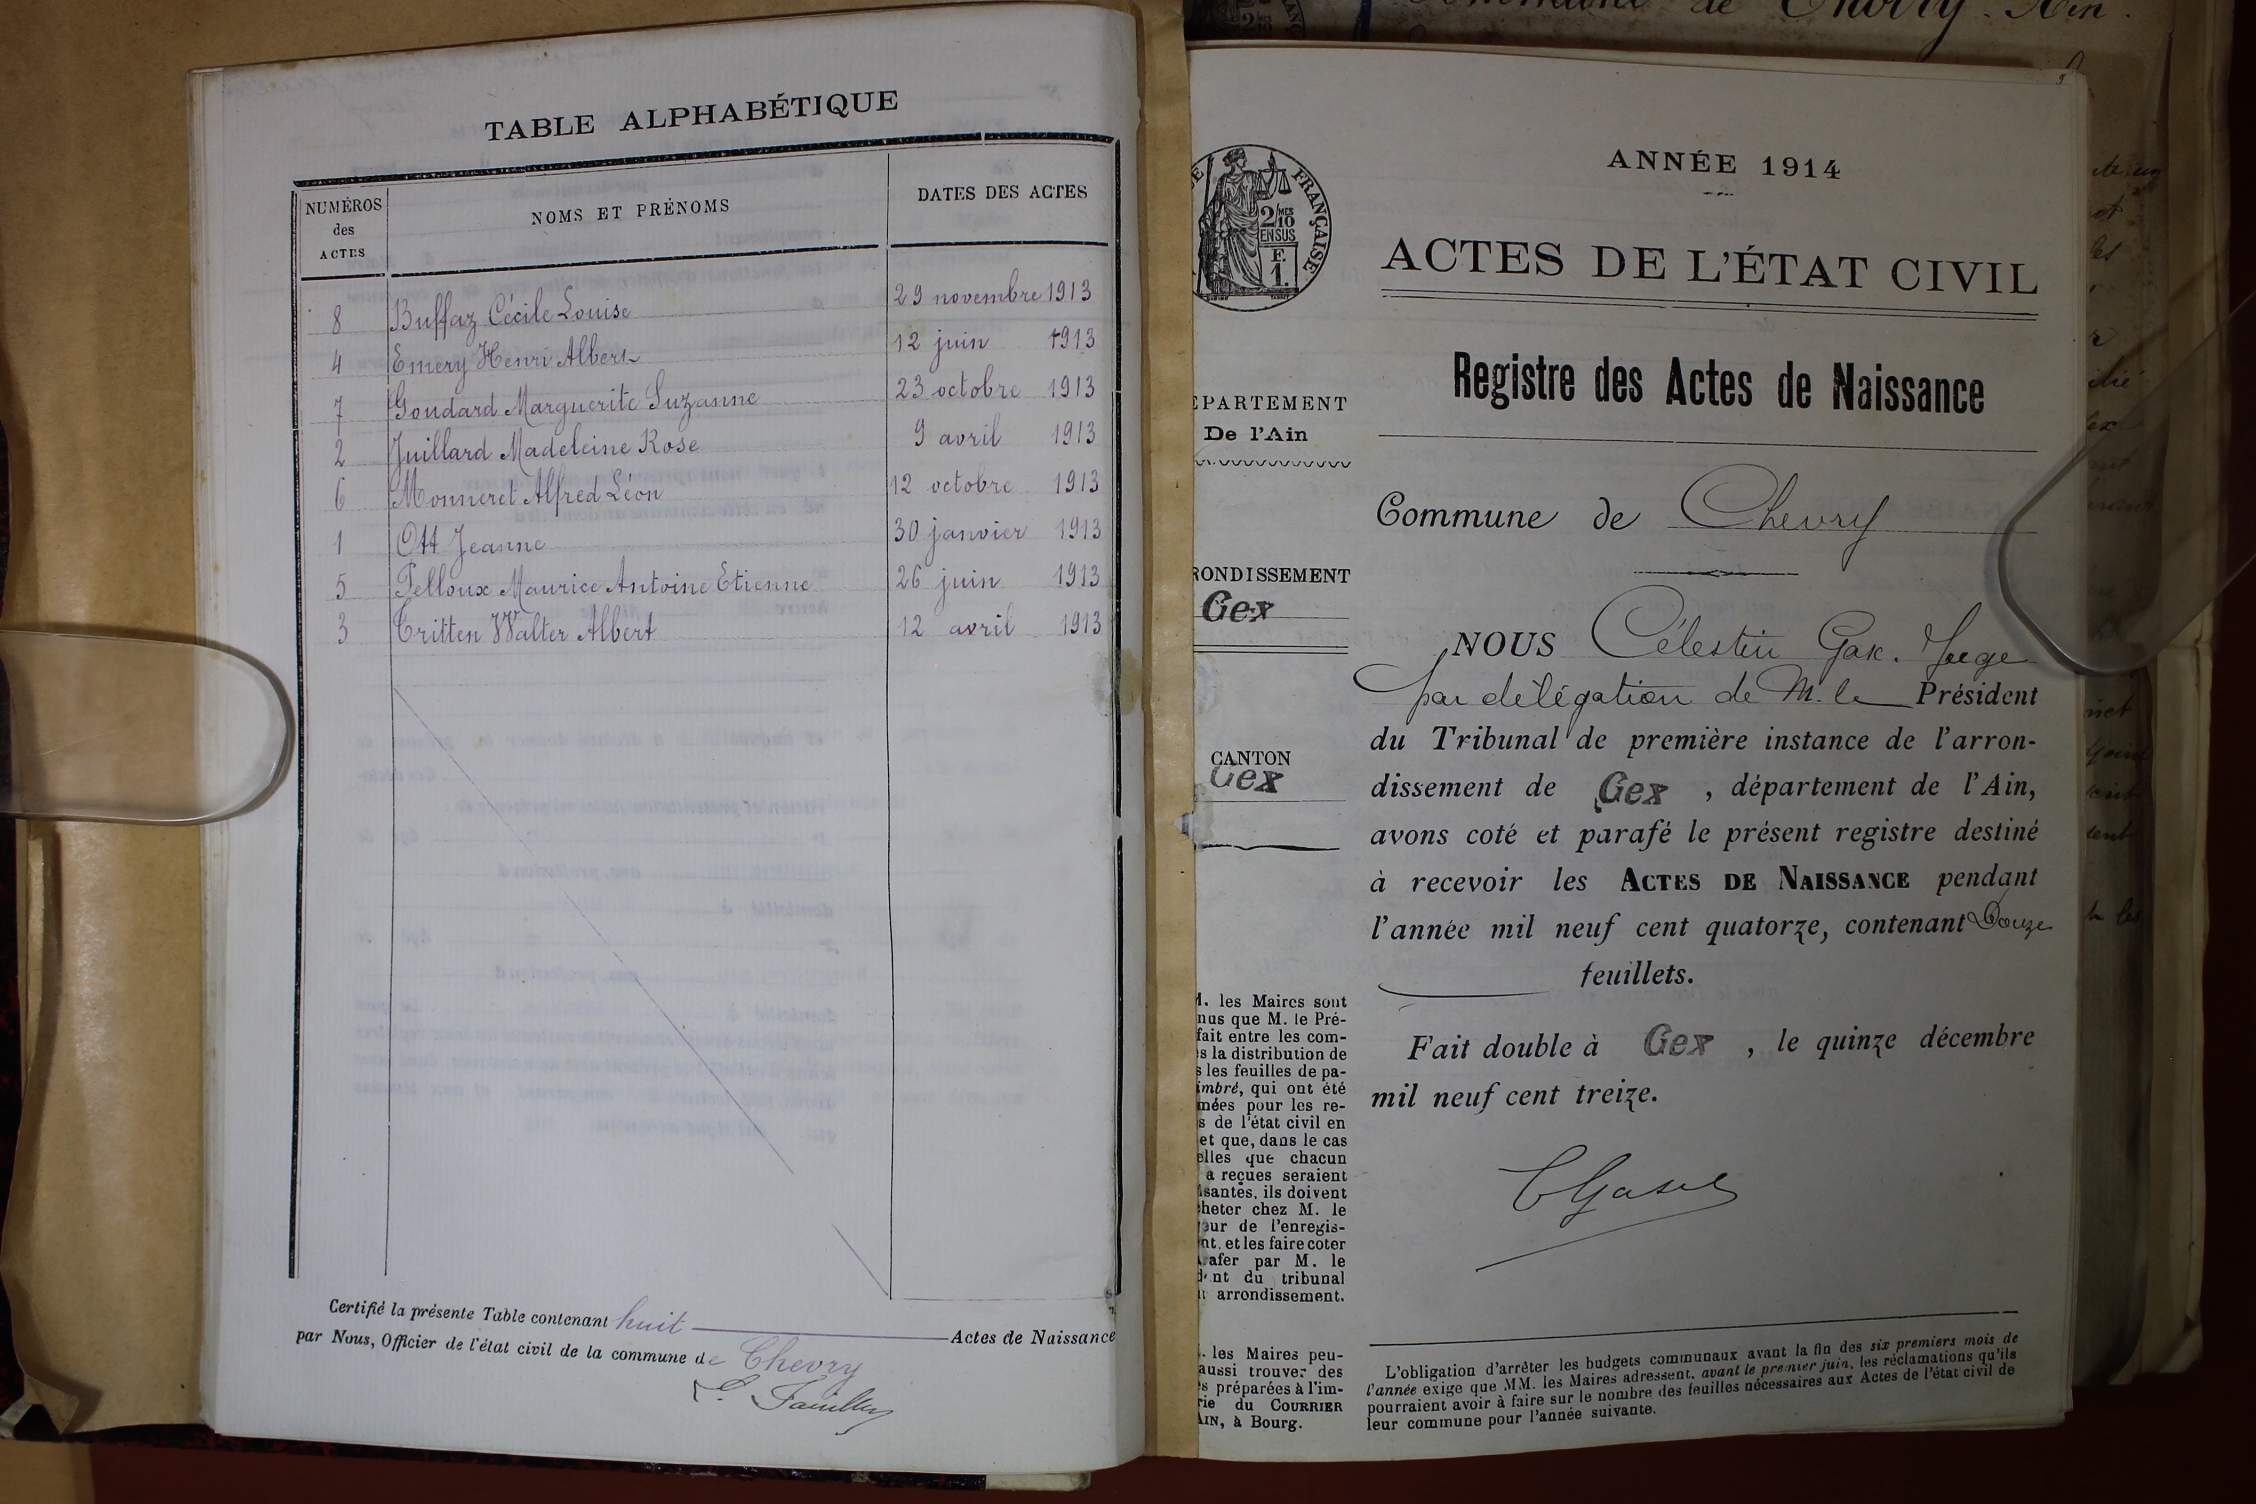 TABLE ALPHABÉTIQUE
NUMÉROS des ACTES
NOMS ET PRÉNOMS
DATES DES ACTES
8 Buffaz Cécile Louise 29 novembre 1913
4 Emery Henri Albert 12 juin 1913
7 Goudard Marguerite Suzanne 23 octobre 1913
2 Juillard Madeleine Rose 9 avril 1913
6 Monneret Alfred Léon 12 octobre 1913
1 Ott Jeanne 30 janvier 1913
5 Pelloux Maurice Antoine Etienne 26 juin 1913
3 Tritten Walter Albert 12 avril 1913
Certifié la présente Table contenant huit Actes de Naissance
par Nous, Officier de l'état civil de la commune de Chevry
Commune de Chevry. Ain.
FRANÇAISE
2/10
MES
EN SUS
F.
1.
EPARTEMENT
De l'Ain
RONDISSEMENT
Gex
CANTON
Gex
M. les Maires sont
nus que M. le Pré-
fait entre les com-
s la distribution de
s les feuilles de pa-
imbré, qui ont été
mées pour les re-
s de l'état civil en
et que, dans le cas
elles que chacun
a reçues seraient
santes, ils doivent
cheter chez M. le
eur de l'enregis-
nt, et les faire coter
rafer par M. le
dent du tribunal
arrondissement.
. les Maires peu-
aussi trouver des
s préparées à l'im-
rie du COURRIER
AIN, à Bourg.
ANNÉE 1914
ACTES DE L'ÉTAT CIVIL
Registre des Actes de Naissance
Commune de Chevry
NOUS Célestin Juge
par délégation de M. le Président
du Tribunal de première instance de l'arron-
dissement de Gex, département de l'Ain,
avons coté et parafé le présent registre destiné
à recevoir les ACTES DE NAISSANCE pendant
l'année mil neuf cent quatorze, contenant Douze
feuillets.
Fait double à Gex, le quinze décembre
mil neuf cent treize.
L'obligation d'arrêter les budgets communaux avant la fin des six premiers mois de
l'année exige que MM. les Maires adressent, avant le premier juin, les réclamations qu'ils
pourraient avoir à faire sur le nombre des feuilles nécessaires aux Actes de l'état civil de
leur commune pour l'année suivante.